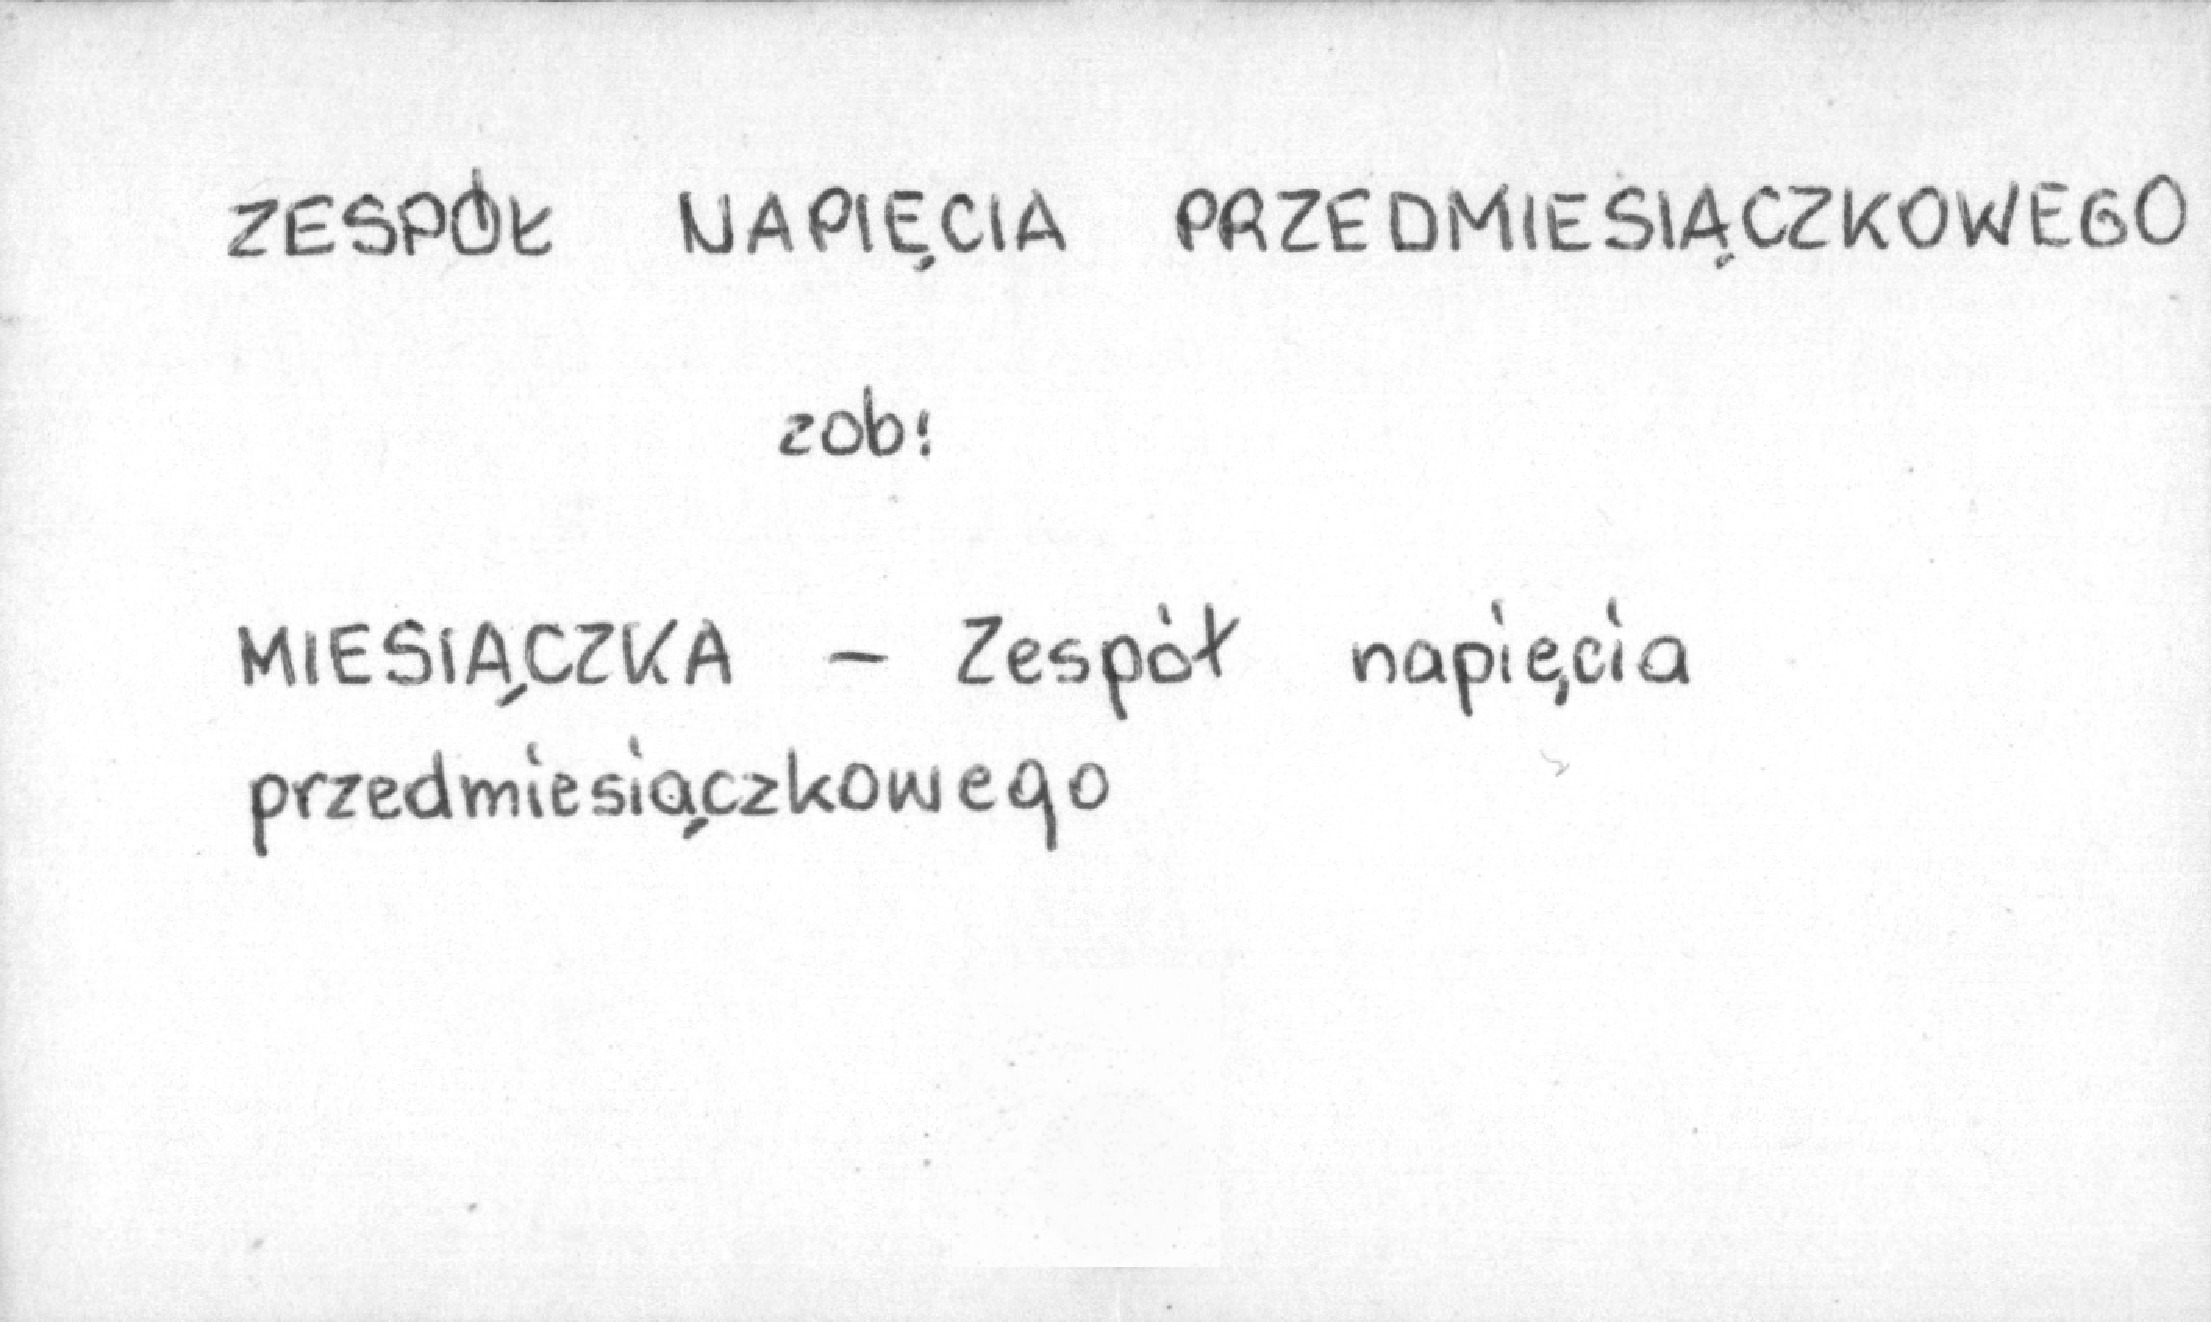 ZESPÓŁ NAPIĘCIA PRZEDMIESIĄCZKOWEGO
zob:
MIESIĄCZKA - Zespół napięcia
przedmiesiączkowego